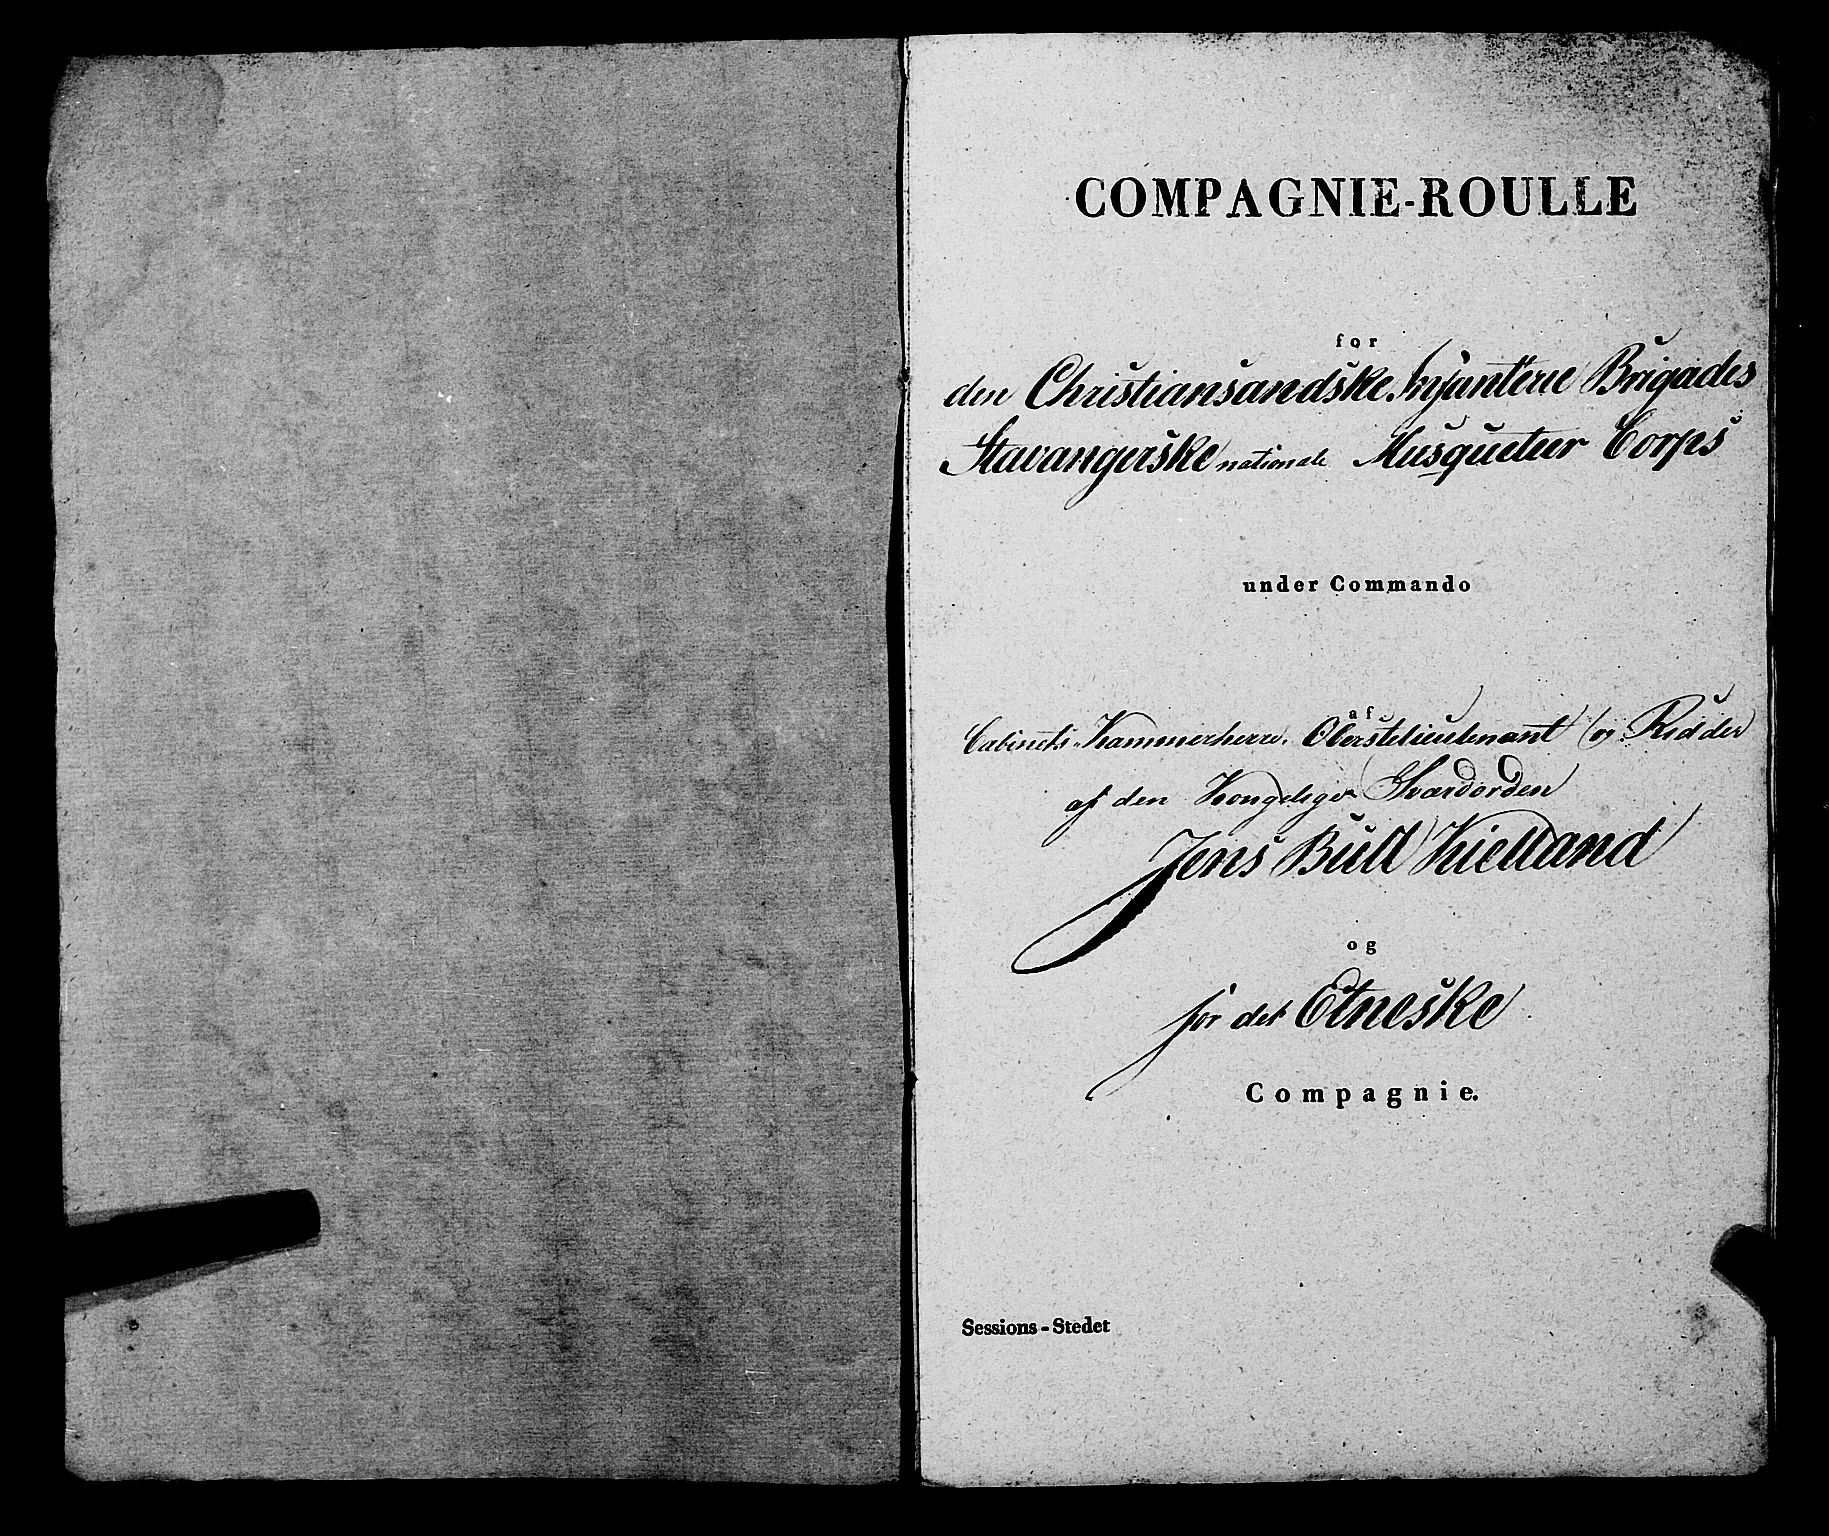 COMPAGNIE-ROULLE
for
den Christiansandske Infanterie Brigades
Stavangerske nationale Musqueteer Corps
under Commando
af
Cabinets-Kammerherre, Oberstelieutenant og Ridder
af den Kongelige Sværdorden
Jens Bull Kielland
og
for det Etneske
Compagnie.
Sessions-Stedet